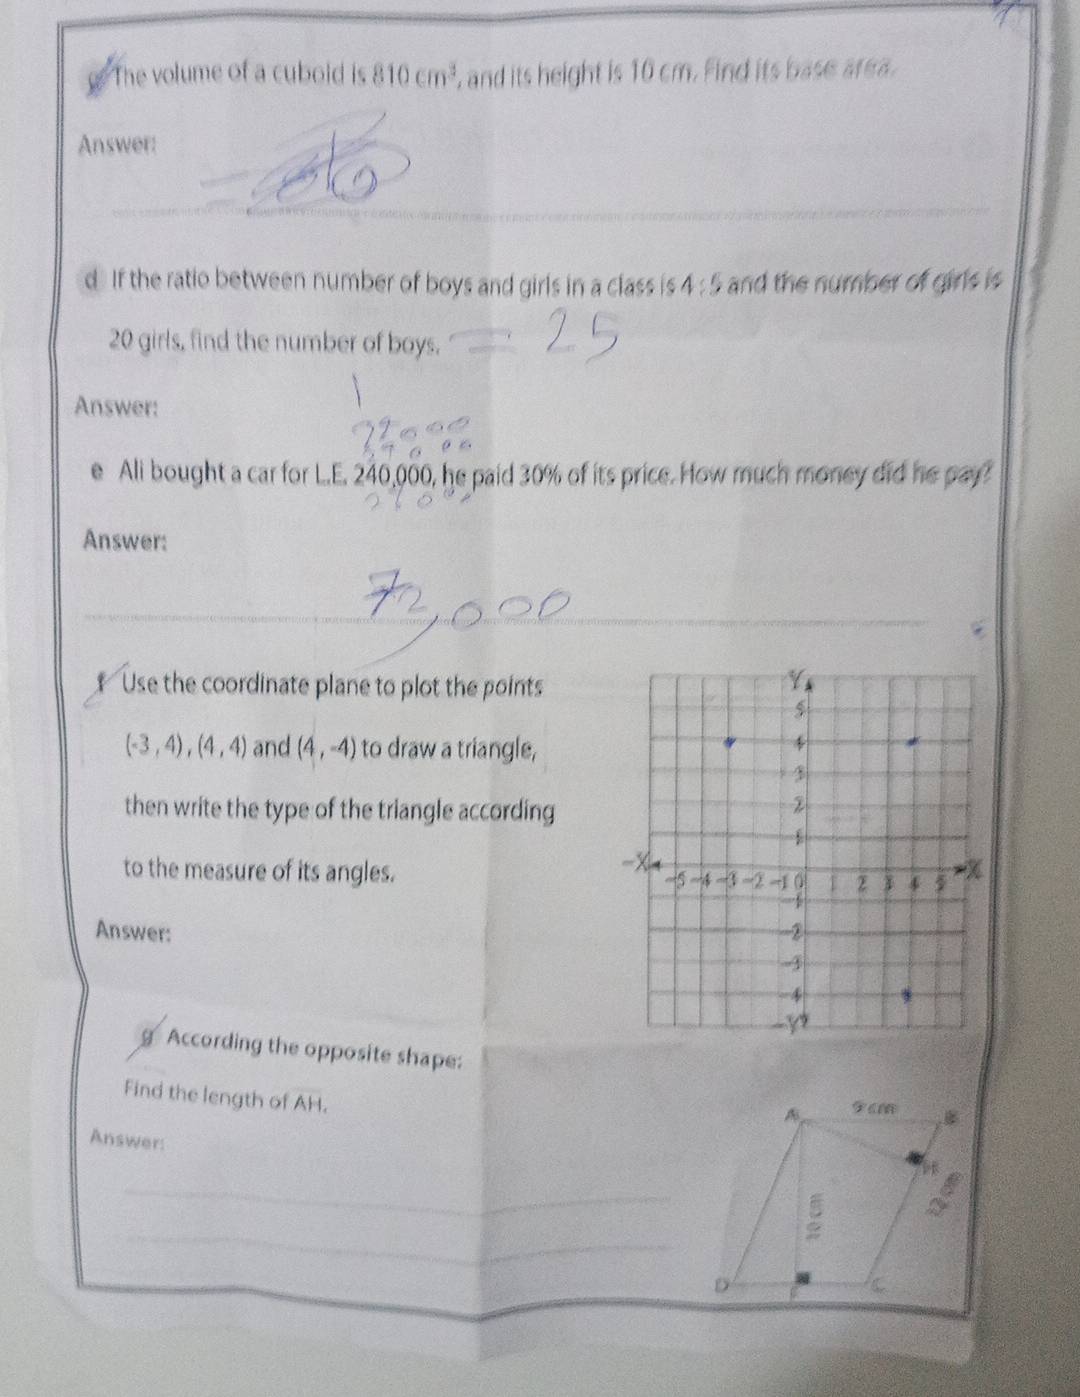 The volume of a cuboid is 810 cm³, and its height is 10 cm. Find its base area.
Answer:
=
d If the ratio between number of boys and girls in a class is 4 : 5 and the number of girls is
20 girls, find the number of boys. = 25
Answer:
e Ali bought a car for L.E. 240,000, he paid 30% of its price. How much money did he pay?
Answer:
72,000
f Use the coordinate plane to plot the points
(-3 , 4) , (4 , 4) and (4 , -4) to draw a triangle,
then write the type of the triangle according
to the measure of its angles.
Answer:
Y
5
4
3
2
1
-X -5 -4 -3 -2 -1 0 1 2 3 4 5 X
-1
-2
-3
-4
-Y
g According the opposite shape:
Find the length of AH.
Answer:
A 9 cm B
H
12 cm
10 cm
D F C